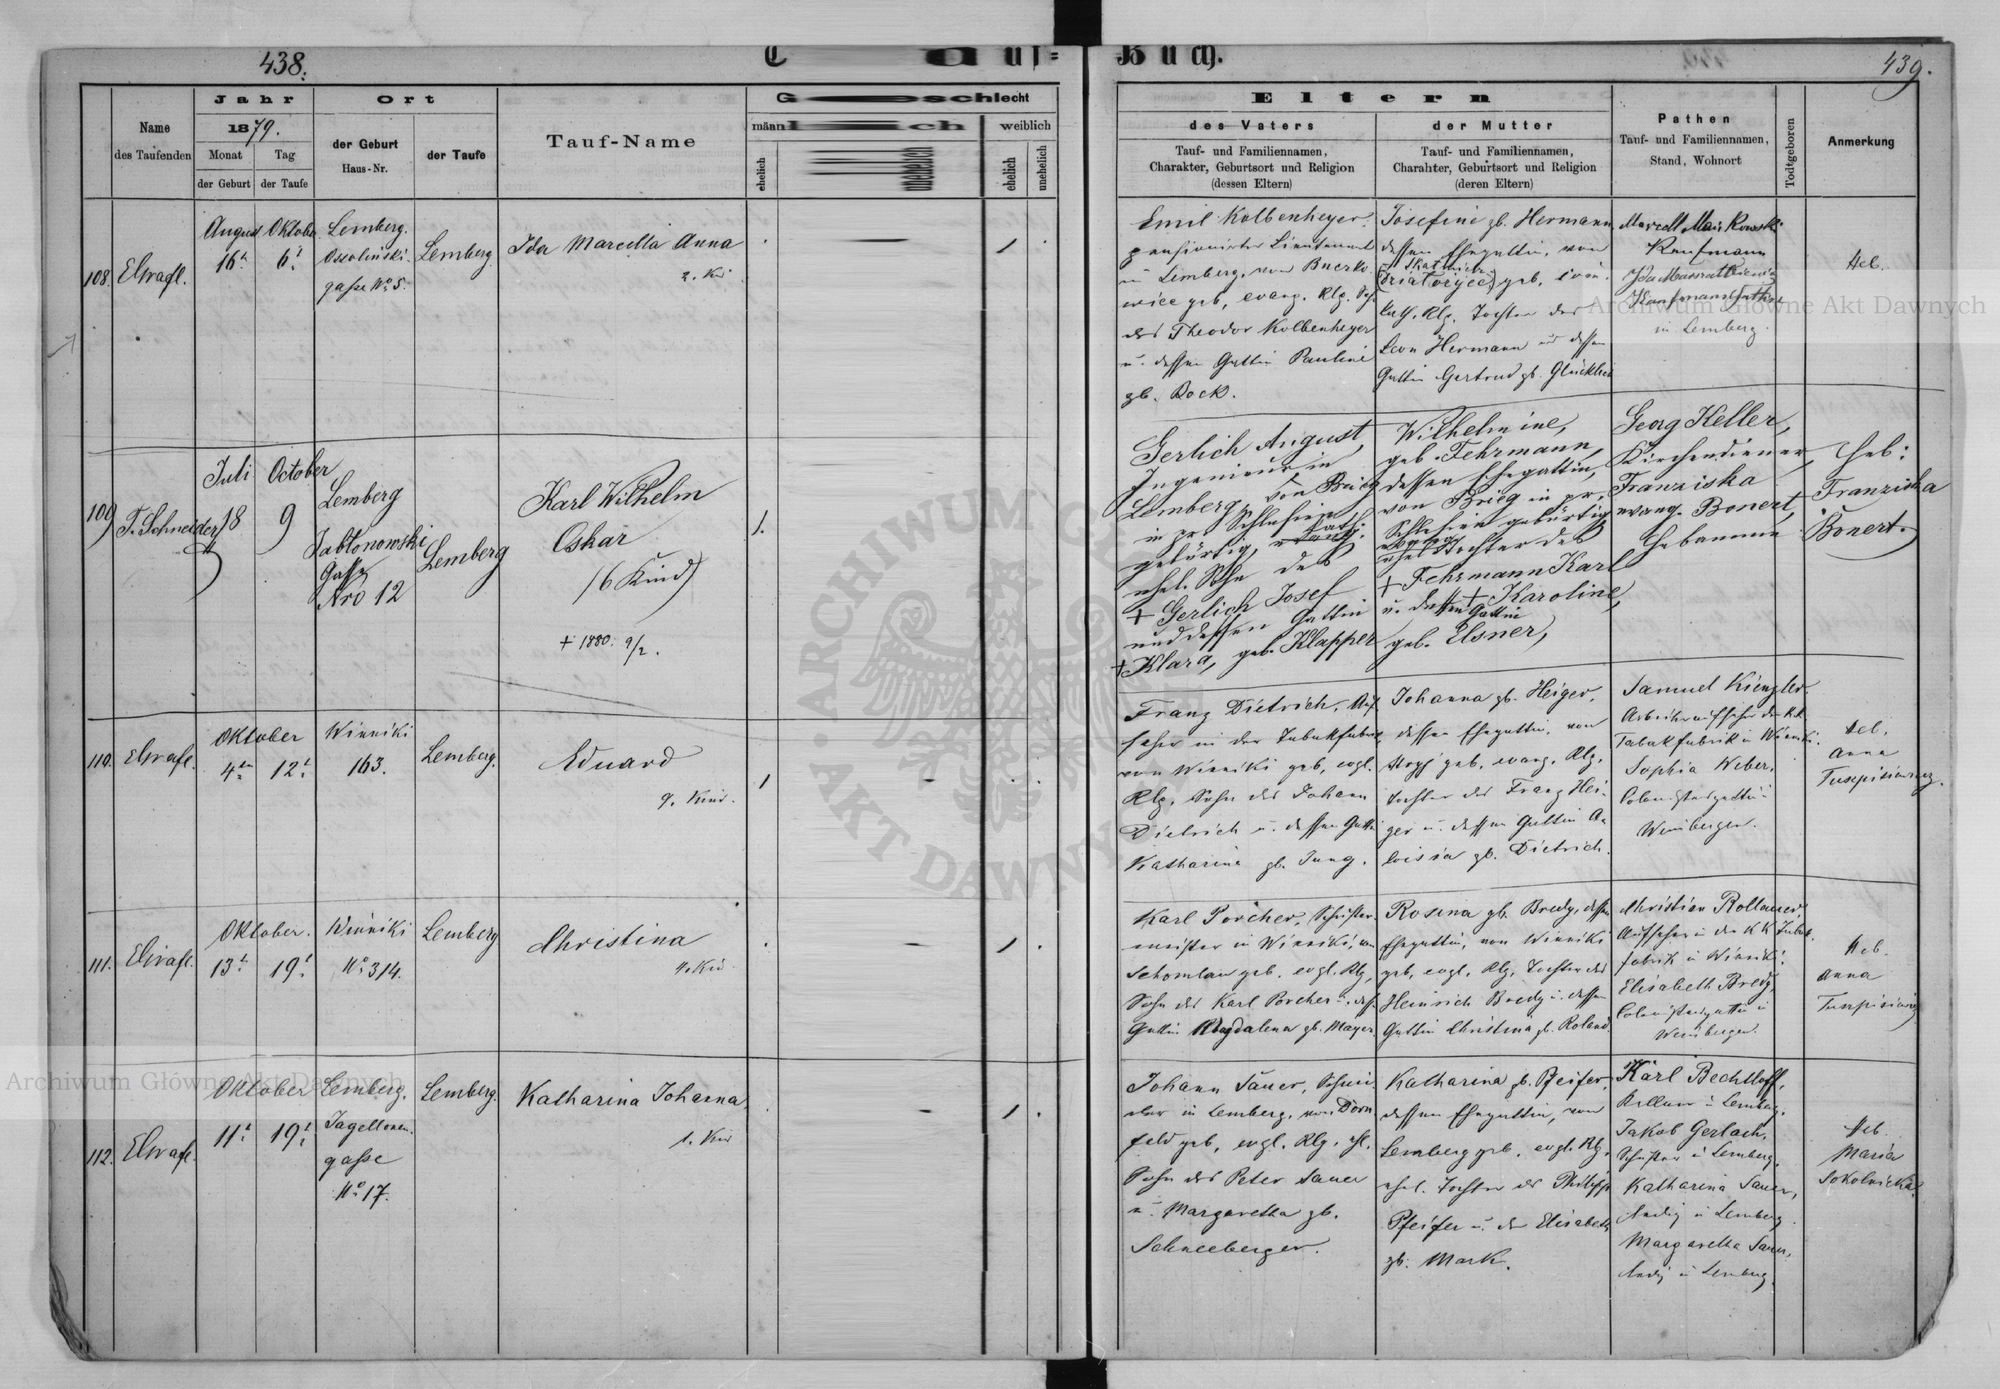 438.
Tauf-
Jahr
1879.
Ort
Geschlecht
Name
des Taufenden
Monat
Tag
der Geburt
der Taufe
der Geburt
Haus-Nr.
der Taufe
Tauf-Name
männlich
weiblich
ehelich
unehelich
ehelich
unehelich
108.
August
Oktober
16
6
Lemberg.
Ossolinski-
gasse No 5.
Lemberg
Ida Marcella Anna
2. Kind
109
T. Schneider
Juli
October
18
9
Lemberg
Jabłonowski
Gasse
Nro 12
Lemberg
Karl Wilhelm
Oskar
(6 Kind)
+ 1880. 9/2.
1.
110.
Oktober
4
12
Winniki
163.
Lemberg.
Eduard
9. Kind.
1
111.
Oktober.
13
19
Winniki
No 314.
Lemberg
Christina
1
112.
Oktober
11
19
Lemberg.
Jagellonen-
gasse
No 17.
Lemberg.
Katharina Johanna
1. Kind
1
Buch.
439.
Eltern
des Vaters
Tauf- und Familiennamen,
Charakter, Geburtsort und Religion
(dessen Eltern)
der Mutter
Tauf- und Familiennamen,
Charakter, Geburtsort und Religion
(deren Eltern)
Pathen
Tauf- und Familiennamen,
Stand, Wohnort
Todtgeboren
Anmerkung
Emil Kolbenheyer
pensionirter Lieutenant
in Lemberg, von
geb, evang. Rlg. Sohn
des Theodor Kolbenheyer
u. dessen Gattin Pauline
gb. Bock.
Josefine gb. Hermann
dessen Ehegattin, von
geb.
kath. Rlg. Tochter des
Leon Hermann und dessen
Gattin Gertrud gb. Glücklich
Marcell
Kaufmann
Ida
Kaufmanns
in Lemberg.
Heb.
Gerlich August,
Ingenieur in
Lemberg von Brieg
in pr Schlesien
gebürtig,
ehel. Sohn des
+ Gerlich Josef
und dessen Gattin
+ Klara, geb. Klapper
Wilhelmine,
geb. Fehrmann,
dessen Ehegattin,
von Brieg in pr.
Schlesien gebürtig
ehel Tochter des
+ Fehrmann Karl
u. dessen + Karoline,
Gattin
geb. Elsner,
Georg Keller,
Kirchendiener,
Franziska
Bonert,
Hebamme
Heb:
Franziska
Bonert.
Franz Dietrich, Auf-
seher in der Tabakfabrik,
von Winniki geb, evgl.
Rlg, Sohn des Johann
Dietrich u. dessen Gattin
Katharina gb. Jung.
Johanna gb. Heiger,
dessen Ehegattin, von
geb, evang. Rlg,
Tochter des Franz Hei-
ger u. dessen Gattin A-
loisia gb. Dietrich.
Samuel Kienzler
Arbeiteraufseher der k.k.
Tabakfabrik in Winniki.
Sophia Weber,
Colonistengattin in
Weinbergen.
Heb.
Anna
Karl Porcher, Schuster-
meister in Winniki, von
Schomlau geb. evgl. Rlg,
Sohn des Karl Porcher u. dess.
Gattin Magdalena gb. Mayer.
Rosina gb. Bredy, dessen
Ehegattin, von Winniki
geb, evgl. Rlg, Tochter des
Heinrich Bredy u. dessen
Gattin Christina gb. Roland.
Christian Rollauer
Aufseher in der k.k. Tabak-
fabrik in Winniki.
Elisabeth Bredy
Colonistengattin in
Weinbergen.
Heb.
Anna
Johann Sauer, Schnei-
der in Lemberg, von Dorn-
feld geb, evgl. Rlg. ehl.
Sohn des Peter Sauer
u. Margaretha gb.
Schneeberger.
Katharina gb. Pfeifer,
dessen Ehegattin, von
Lemberg geb. evgl. Rlg,
ehel. Tochter des Philipp
Pfeifer u. der Elisabeth
gb. Mark.
Karl Bechtloff,
Kellner in Lemberg.
Jakob Gerlach,
Schuster in Lemberg,
Katharina Sauer,
ledig in Lemberg.
Margaretha Sauer,
ledig in Lemberg.
Heb.
Maria
Sokolnicka.
Archiwum Główne Akt Dawnych
ARCHIWUM GŁÓWNE AKT DAWNYCH
Archiwum Główne Akt Dawnych